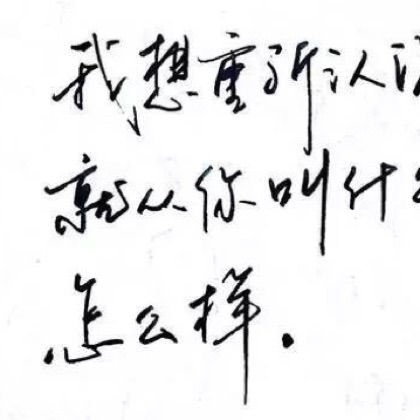 我想重新认识
就从你叫什么
怎么样.